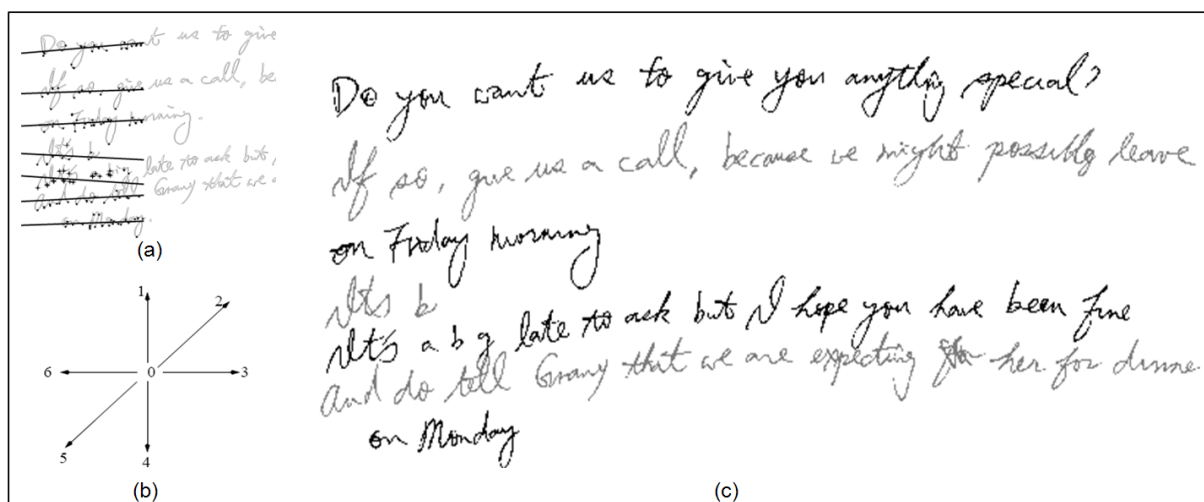 Do you want us to give
If so, give us a call, be
on Friday morning.
Its b
late to ask but,
And do tell Grany that we
on Monday.
(a)
1
2
6
0
3
5
4
(b)
Do you want us to give you anything special?
If so, give us a call, because we might possibly leave
on Friday morning
Its b
It's a b g late to ask but I hope you have been fine
And do tell Grany that we are expecting her for dinne
on Monday
(c)